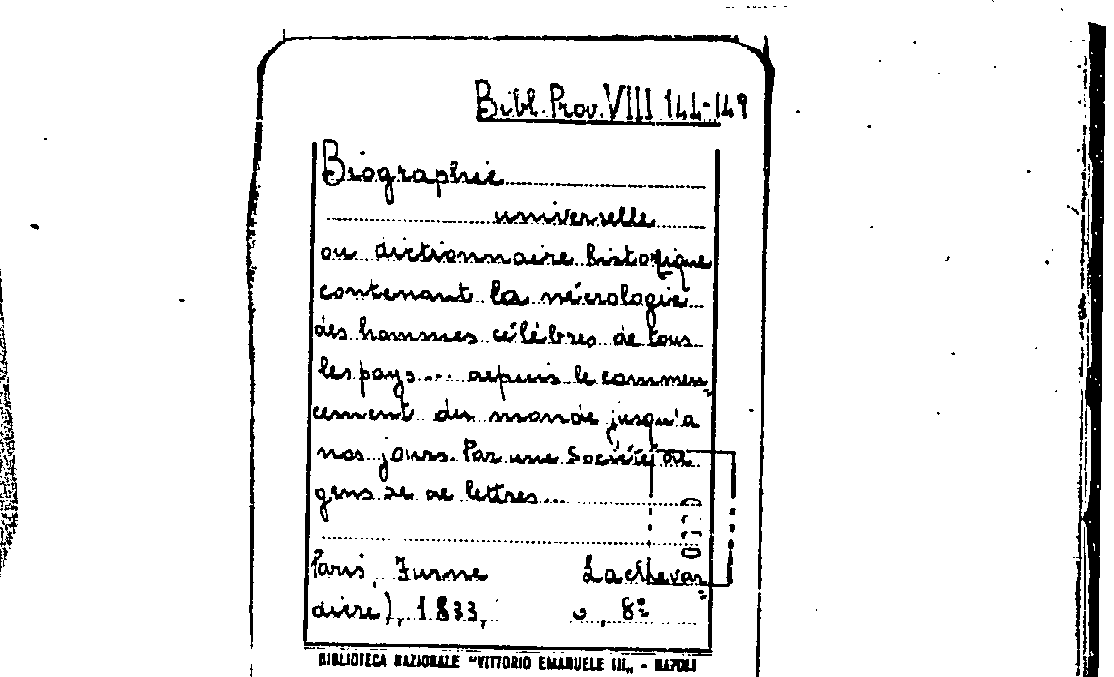 Bibl. Prov. VIII 144-149
Biographie
universelle
ou dictionnaire historique
contenant la nécrologie
des hommes célébres de tous
les pays... depuis le commen=
cement du monde jusqu'a
nos jours. Par une Société de
gens de lettres...
Paris, Furne Lachevar=
diere), 1833, 8º
BIBLIOTECA NAZIONALE "VITTORIO EMANUELE III„ - NAPOLI